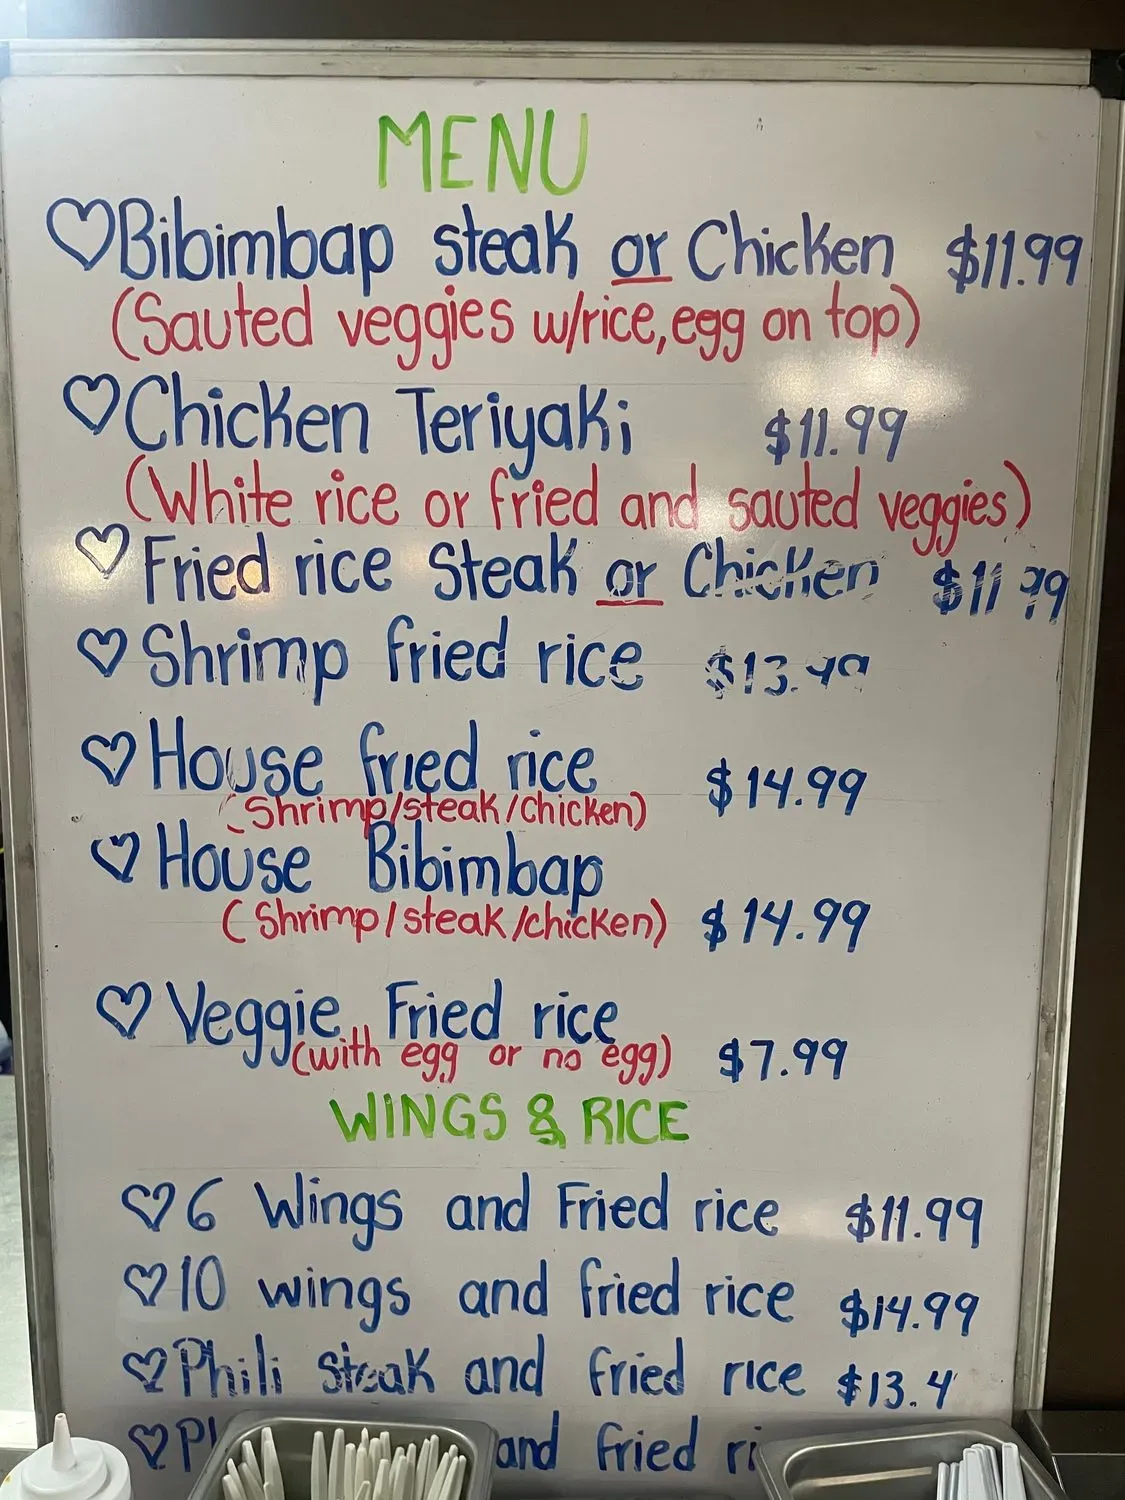 MENU
♡Bibimbap steak or Chicken $11.99
(Sauted veggies w/rice, egg on top)
♡Chicken Teriyaki $11.99
(White rice or fried and sauted veggies)
♡Fried rice Steak or Chicken $11.99
♡Shrimp fried rice $13.49
♡House fried rice $14.99
(Shrimp/steak/chicken)
♡House Bibimbap
(Shrimp/steak/chicken) $14.99
♡Veggie Fried rice
(with egg or no egg) $7.99
WINGS & RICE
♡6 Wings and Fried rice $11.99
♡10 wings and fried rice $14.99
♡Phili Steak and fried rice $13.4
♡ and fried